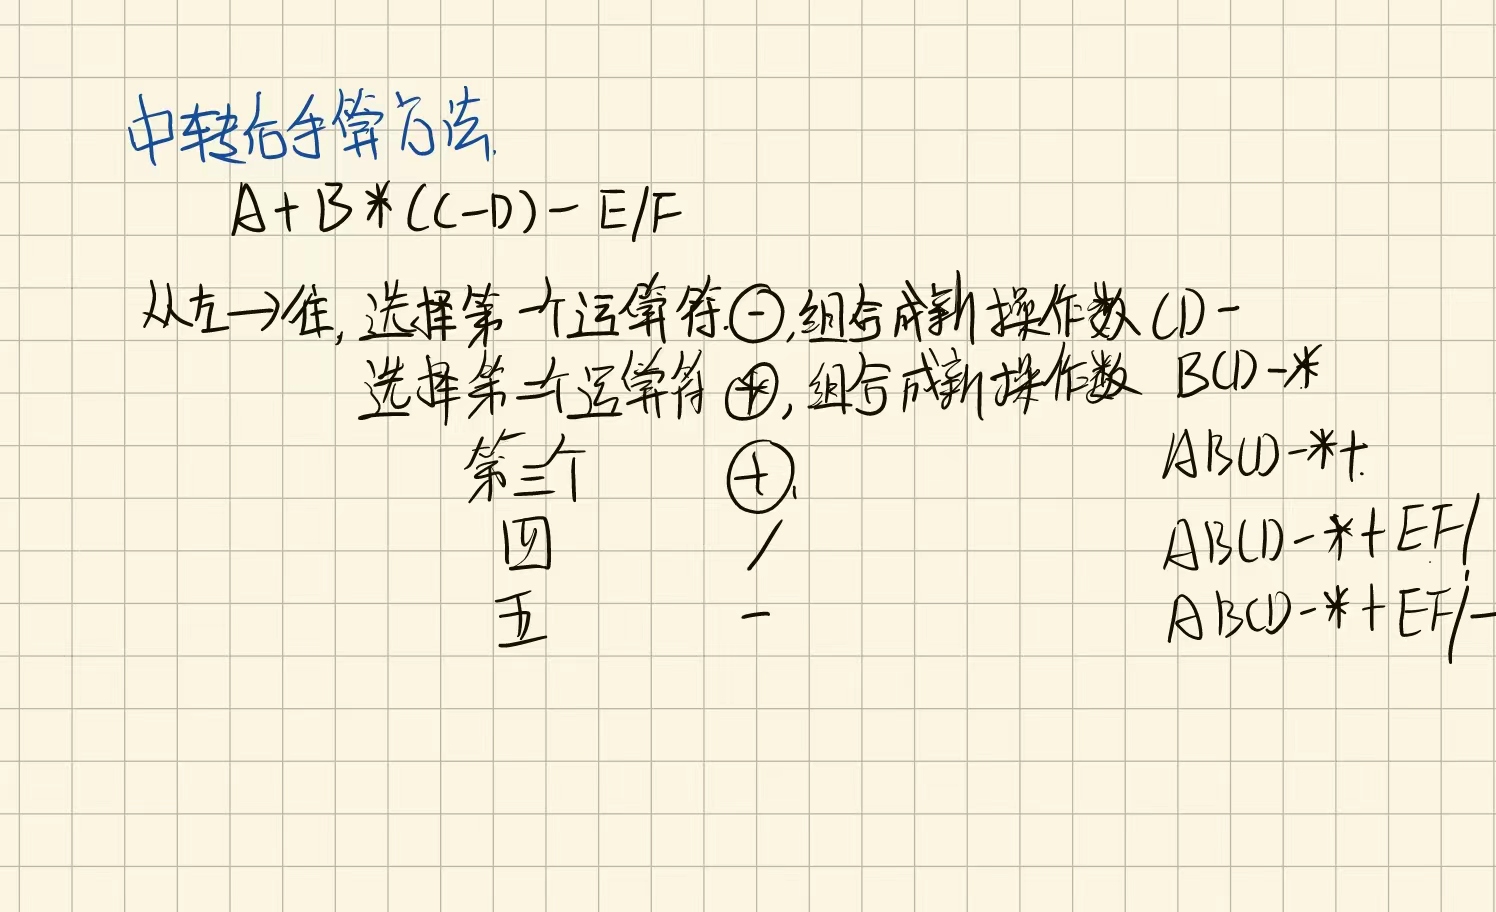 中转后手算方法.
A+B*(C-D)-E/F
从左→往, 选择第一个运算符⊖, 组合成新操作数CD-
选择第二个运算符⊛, 组合成新操作数 BCD-*
第三个 ⊕, ABCD-*+.
四 / ABCD-*+EF/
五 - ABCD-*+EF/-